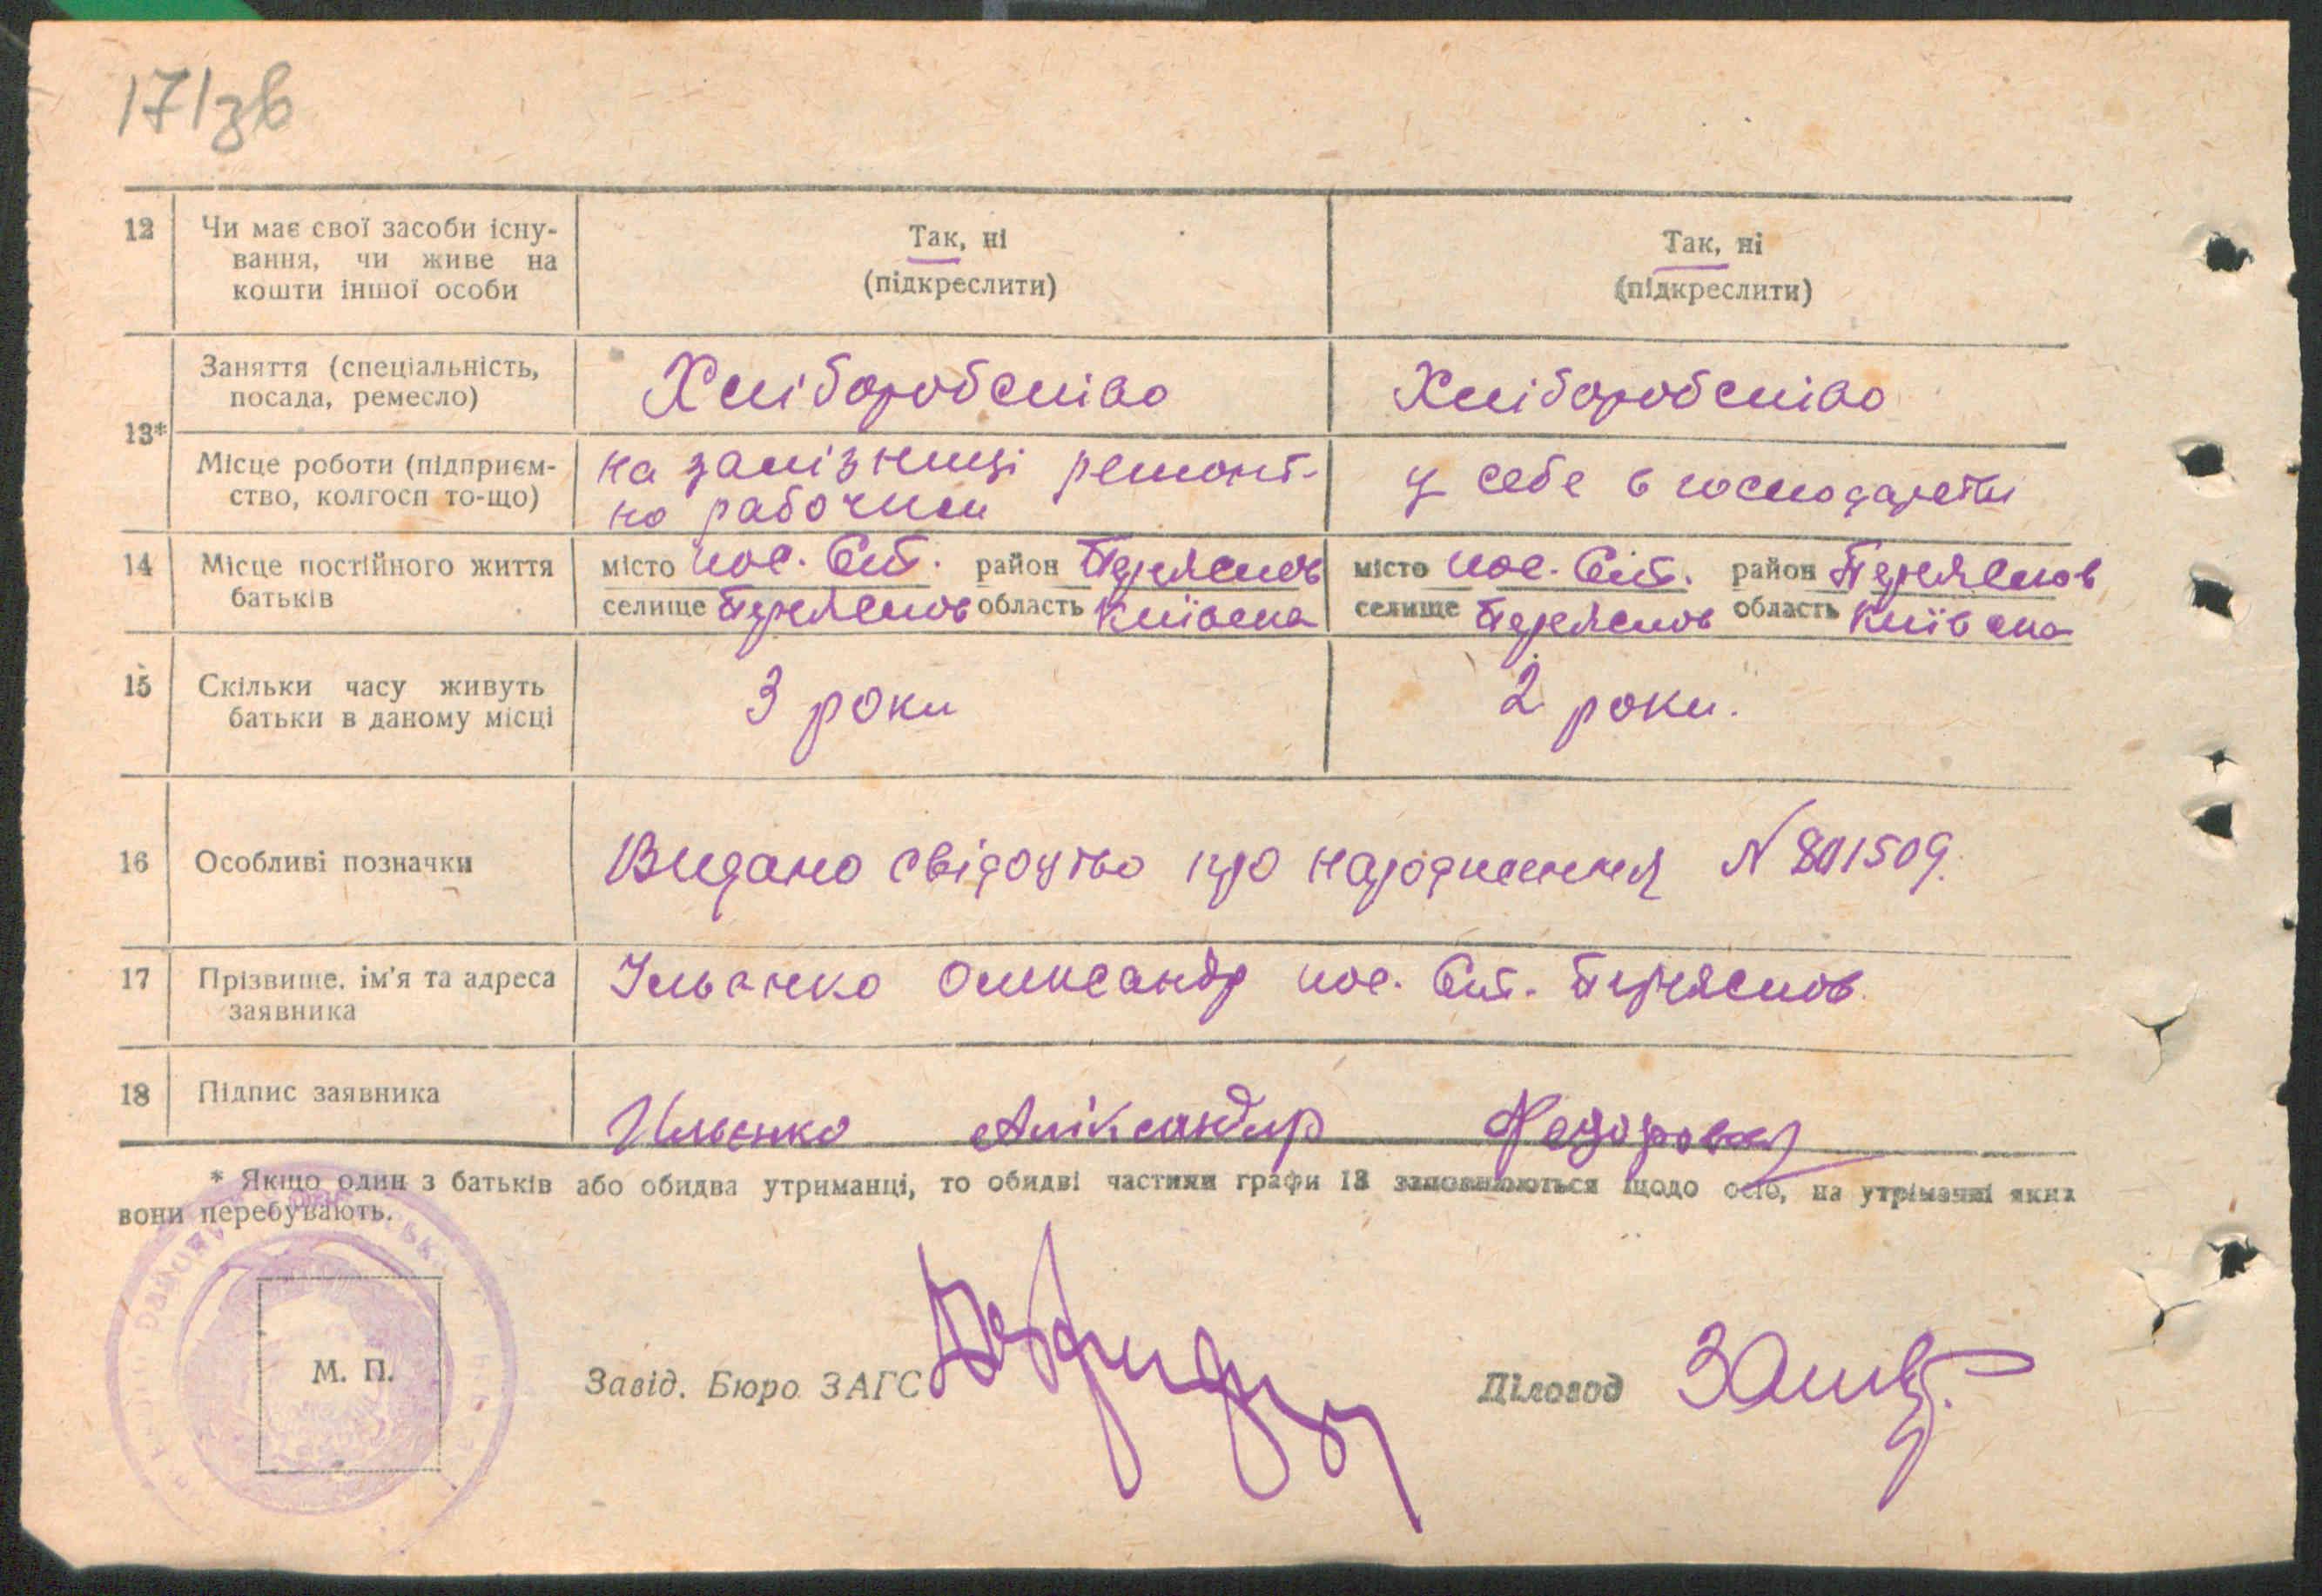 171зв
12 Чи має свої засоби існу-
вання, чи живе на
кошти іншої особи
Так, ні
(підкреслити)
Так, ні
(підкреслити)
13*
Заняття (спеціальність,
посада, ремесло)
Хліборобство
Хліборобство
Місце роботи (підприєм-
ство, колгосп то-що)
на залізниці ремонт-
но рабочим
у себе в господарстві
14 Місце постійного життя
батьків
місто пос. Ст. район Переяслов
селище Переяслов область Київска
місто пос. Ст. район Переяслов
селище Переяслов область Київска
15 Скільки часу живуть
батьки в даному місці
3 роки
2 роки.
16 Особливі позначки
Видано свідоцтво про народження N 801509.
17 Прізвище, ім'я та адреса
заявника
Ільєнко Олександр пос. Ст. Переяслов
18 Підпис заявника
Ильєнко
* Якщо один з батьків або обидва утриманці, то обидві частини графи 13 заповнюються щодо осіб, на утриманні яких
вони перебувають.
М. П.
Завід. Бюро ЗАГС
Діловод